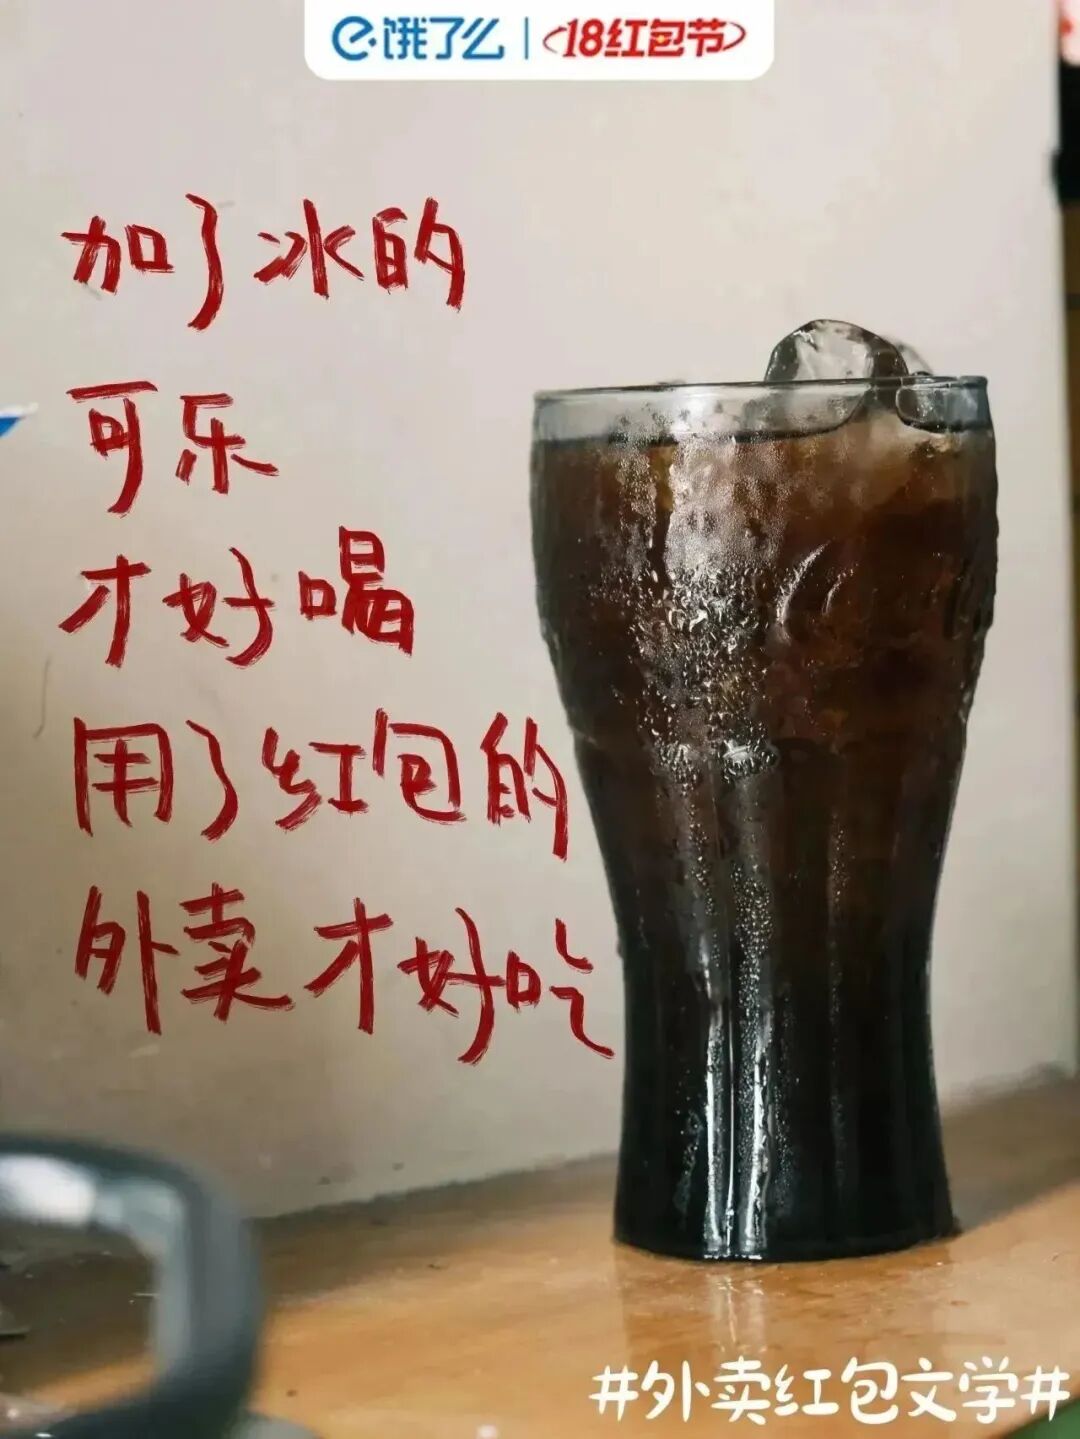 饿了么 | 18红包节
加了冰的
可乐
才好喝
用了红包的
外卖才好吃
#外卖红包文学#